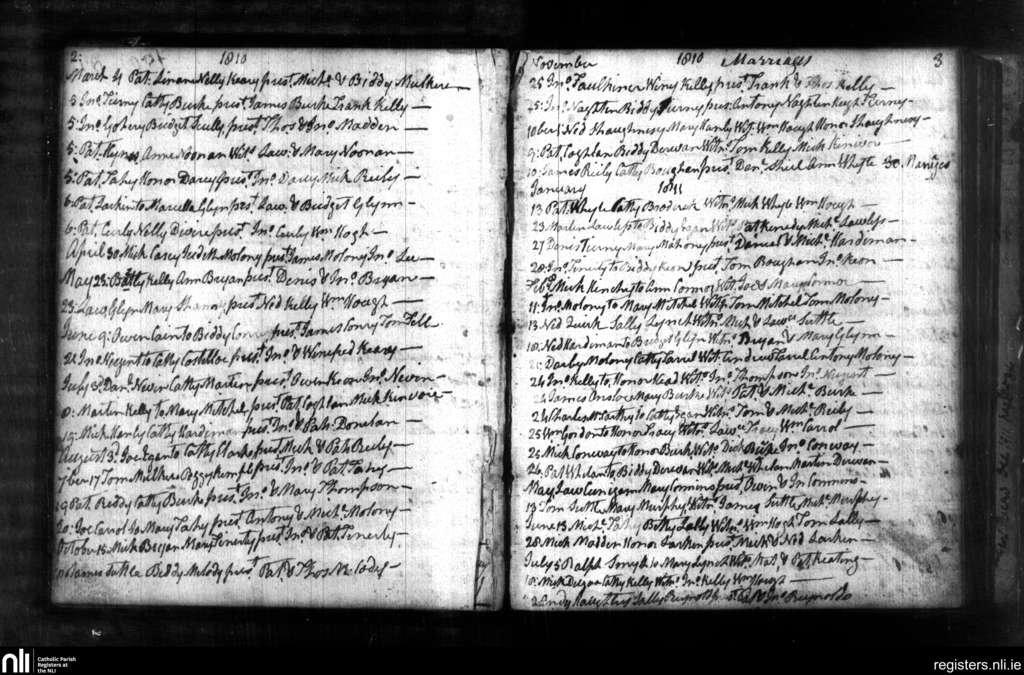 2: 1810
March 4 Pat: Linane Nelly Keary prest. Michl. & Biddy Mulkere
5 Jno. Tierny Catty Burke prest. James Burke Frank Kelly
5: Jno. Gohery Budget Scully prest. Thos & Jno. Madden
5: Pat. Hynes Anne Noonan Witn. Law: & Mary Noonan
5: Pat. Fahy Honor Darcy prest. Jno. Darcy Mick Reily
6 Pat. Larkin to Marcella Glynn prest. Law. & Budget Glynn
6: Pat. Curly Nelly prest. Jno. Curly Wm. Hogh
April 30 Mick Casey Judeth Molony prest. James Molony Jno. Lee
May 23: Batty Kelly Ann Bryan prest. Denis & Jno. Bryan
23: Glynn Mary prest. Ned Kelly Wm. Hough
June 9: Owen Cain to Biddy prest. James Conry Tom Fell
21 Jno. Negent to Catty Costelloe prest. Jno. & Winefred Keary
July 3: Danl. Neven Catty Martin prest. Owen Keon Jno. Neven
8: Martin Kelly to Mary Mitchel prest. Pat Coghlan Mick Kinevore
15: Mick Hanly Catty Hardeman prest. Jno. & Patt. Donelan
August 3: Joe Egan to Catty Clarke prest. Mick & Patt Reily
7ber 17 Tom Mulkere Peggy prest. Jno. & Pat Fahy
19 Pat. Reddy Catty Burke prest. Jno. & Mary Thompson
20: Joe Carrol to Mary Fahy prest. Antony & Michl. Molony
October 15 Mick Bryan Mary Finerty prest. Jno. & Pat. Finerty
James Biddy Melody prest. Pat. & Thos Mc
November 1810 Marriages 3
25 Jno. Faulkiner Winy Kelly prest. Frank & Thos Kelly
25: Jno. Naghten Biddy Tierny pres. Antony Naghten Hugh Tierney
10ber 1 Ned Shaughnesy Mary Hanly Wit. Wm. Hough Honor Shaughnesy
9: Pat Coghlan Biddy Derwan Witn. Tom Kelly Mick Kinevore
10: James Reily Catty Boughan prest. Den. Shiel Ann Whyte 30 Mariges
January 1811
13 Pat. Whyte Catty Broderick Witn. Mick Whyte Wm Hough
23 Martin Lawless to Biddy Egan Witn. Pat Kenedy Michl. Lawless
27 Denis Tierny Mary Mahony prest. Daniel & Michl. Hardeman
28 Jno. Finerty to Biddy Keon prest. Tom Boughan Jno. Keon
Feb. Mick Kinchey to Ann Connor Wit. Joe & Mary Connor
11: Jno. Molony to Mary Mitchel Witn. Tom Mitchel Tom Molony
13 Ned Quirk Sally Lynch Witn. Mich. & Lawce. Tuttle
18: Ned Hardeman to Bridget Glynn Witn. Bryan & Mary Glynn
21: Darby Molony Catty Carrol Witt. Andrew Carrol Antony Molony
24 Jno. Kelly to Honor Mead Witn. Jno. Thompson Jno. Nugent
24 James Mary Burke Wit. Pat & Michl. Burke
24 Charles McCarthy to Catty Egan Witn. Tom & Michl. Reily
25 Wm. Gordon to Honor Tracy Witn. Lawce. Tracy Wm. Carrol
25 Mick Conway to Honor Burk Witn. Dick Burke Jno. Conway
26 Pat Whelan to Biddy Derwan Wit. Michl. Whelan Martin Derwan
May Law Cunigam Mary Comins prest. Owen & Jn Commons
13 Tom Tuttle Mary Murphy Witn. James Tuttle Michl. Murphy
June 13 Michl. Fahy Betty Lally Witn. Wm Hogh Tom Lally
28 Mick Madden Honor Larken prest. Mick & Ned Larken
July 5 Ralph Smyth to Mary Lynch Witn. Mat. & Pat Keating
18: Mick Dugan Catty Kelly Witn. Jno. Kelly Wm Hough
Andy Sally Reynolds prest. Pat & Jno. Reynolds
nli
Catholic Parish
Registers at
the NLI
registers.nli.ie